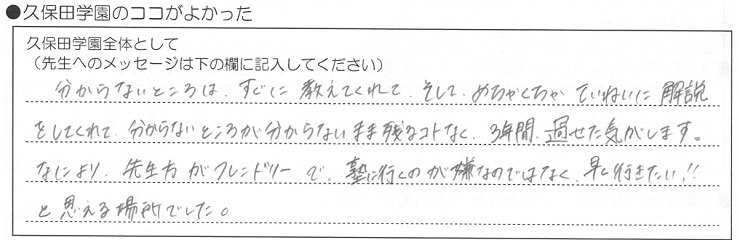 ●久保田学園のココがよかった
久保田学園全体として
（先生へのメッセージは下の欄に記入してください）
分からないところは、すぐに教えてくれて、そして、めちゃくちゃていねいに解説
をしてくれて、分からないところが分からないまま残るコトなく、3年間、過せた気がします。
なにより、先生方がフレンドリーで、塾に行くのが嫌なのではなく、早く行きたい!!
と思える場所でした。